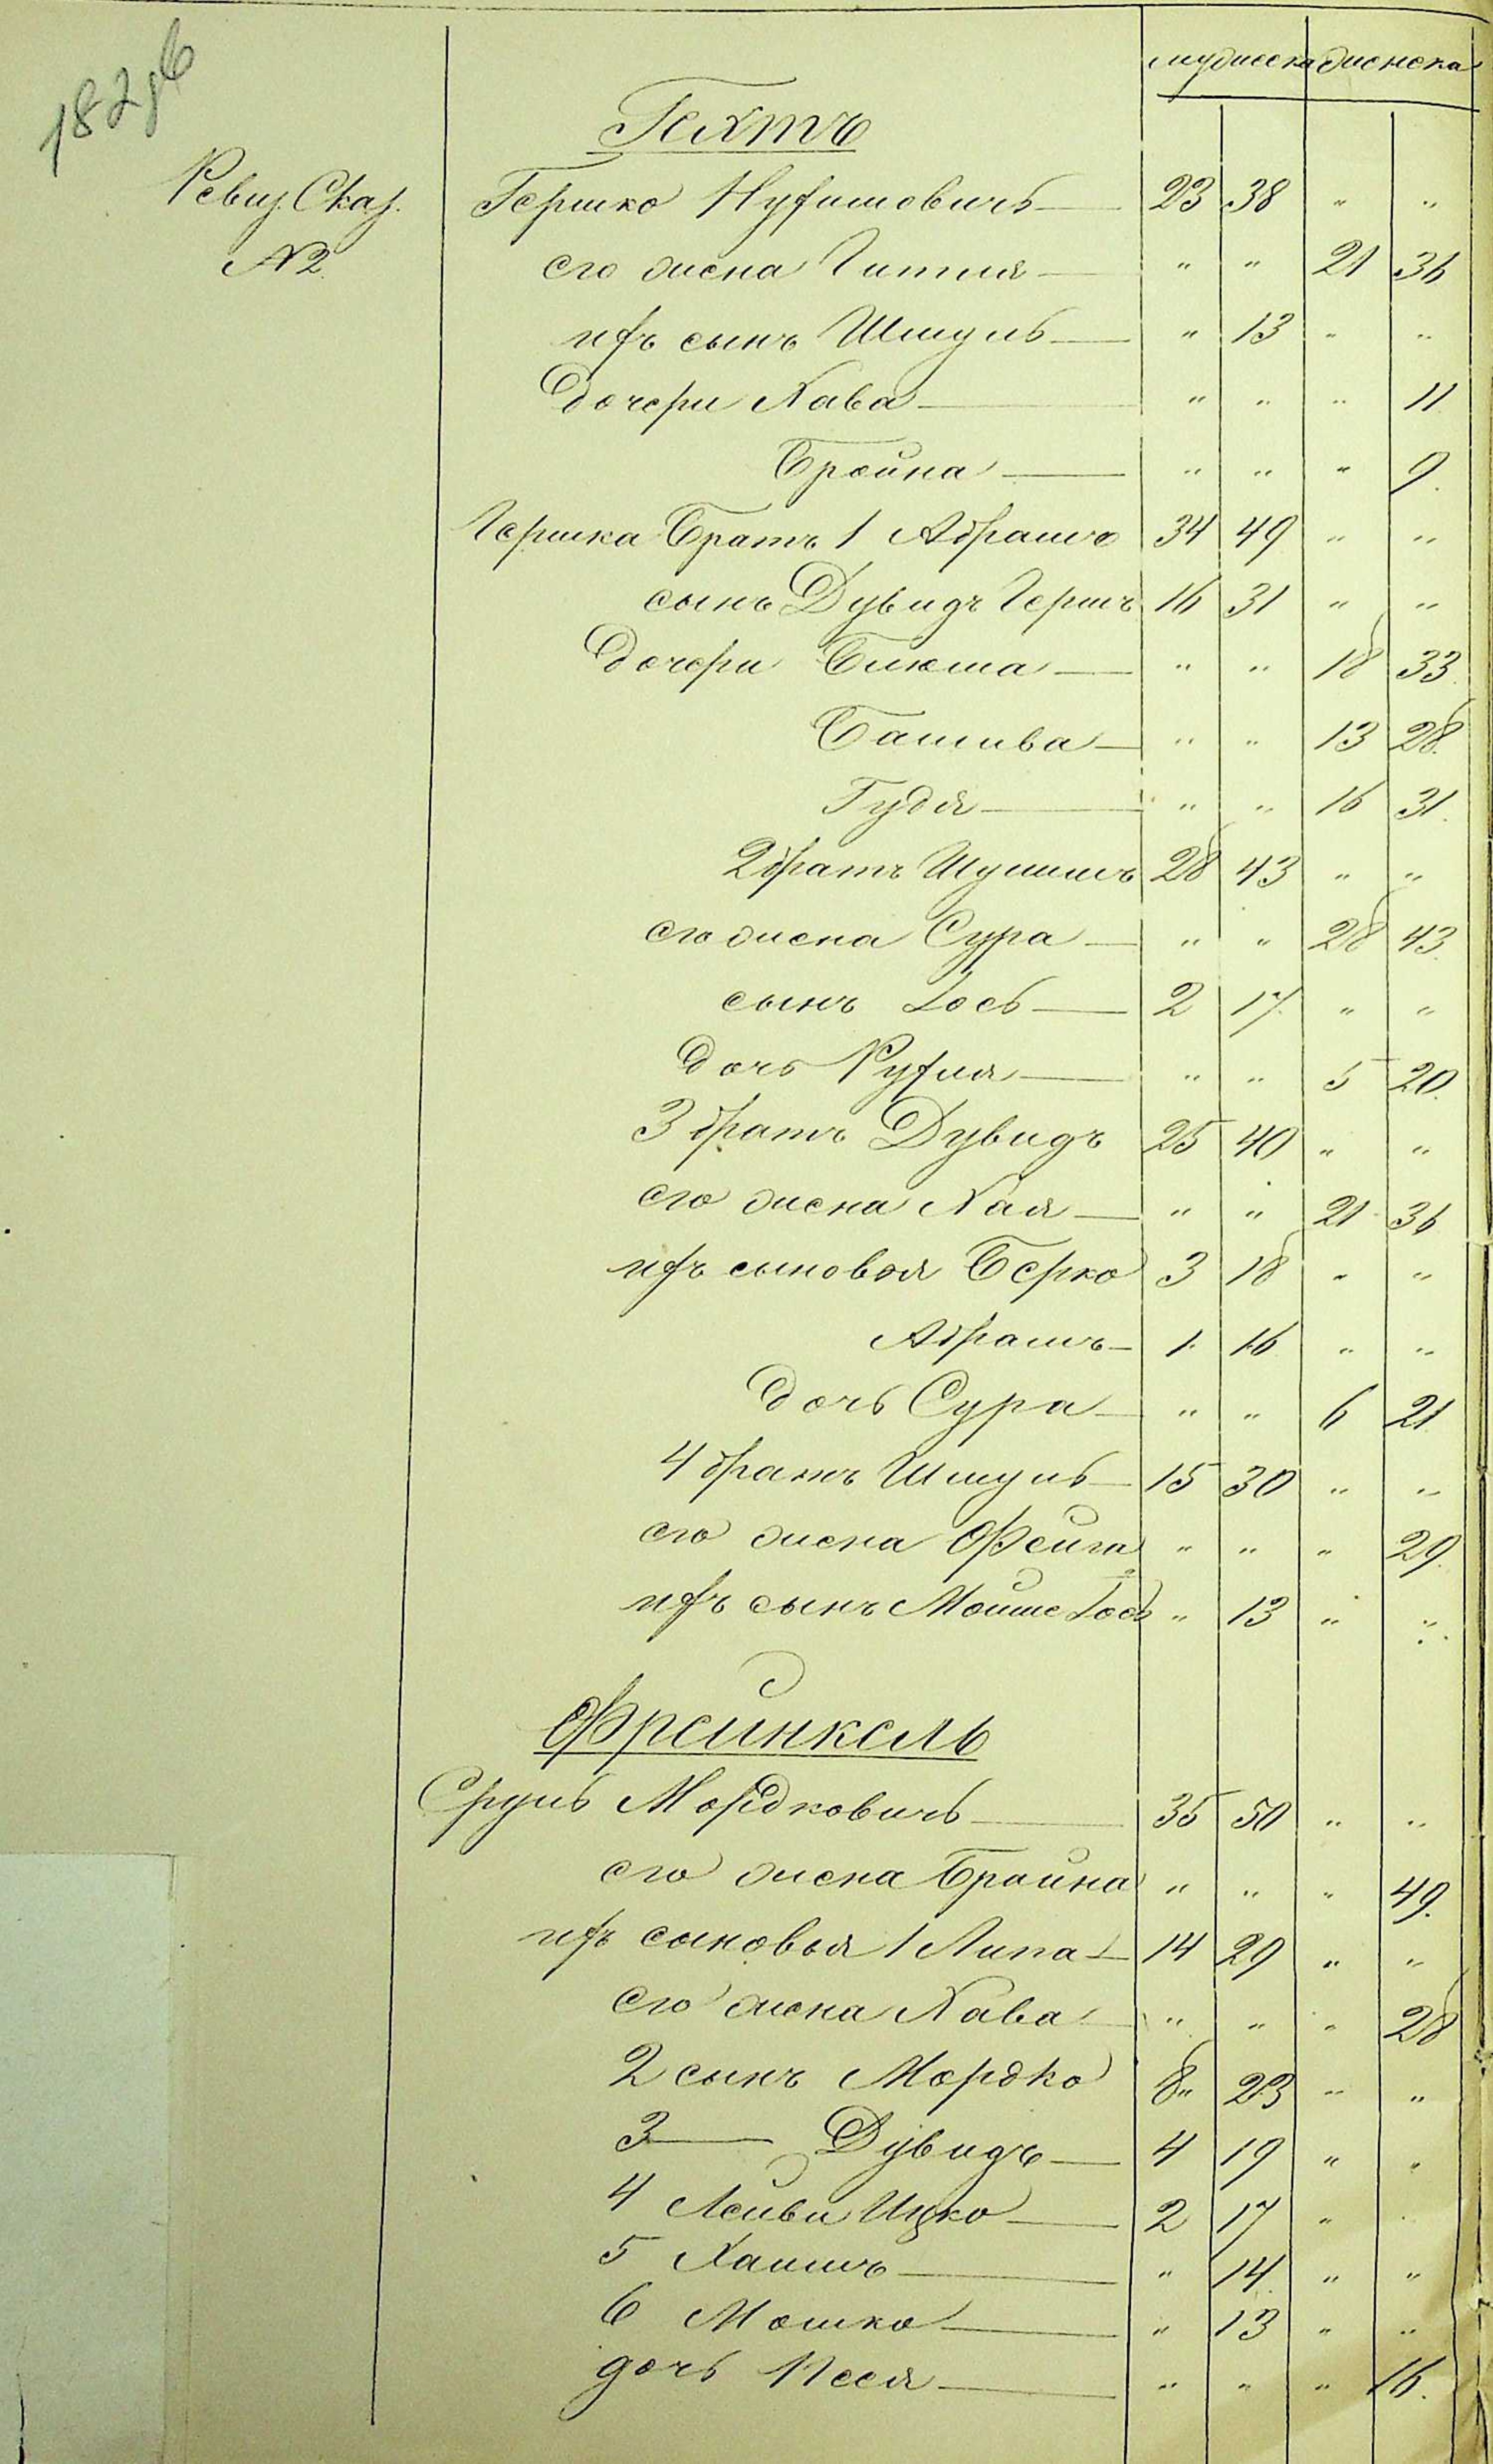 мужеска женска
Гехтъ
Ревиз. Сказ. Гершко Нухимовичъ — 23 38 " "
N 2. его жена Гитля — " " 21 36
ихъ сынъ Шмуль — " 13 " "
Дочери Хава — " " " 11.
Бройна — " " " 9.
Гершка Братъ 1 Абрамъ 34 49 " "
сынъ Дувидъ Гершъ 16 31 " "
Дочери Блюма — " " 18 33.
Башива — " " 13 28.
Гудя — " " 16 31.
2 братъ Шулимъ 28 43 " "
его жена Сура — " " 28 43.
сынъ Іось — 2 17. " "
Дочь Рухля — " " 5 20.
3 братъ Дувидъ 25 40 " "
его жена Хая — " " 21 36
ихъ сыновья Берко 3 18 " "
Абрамъ — 1. 16 " "
Дочь Сура — " " 6 21
4 братъ Шмуль — 15 30 " "
его жена Фейга " " " 29.
ихъ сынъ Мойше Іось " 13 " "
Фрейнкель
Сруль Мордковичъ — 35 50 " "
его жена Брайна " " " 49.
ихъ сыновья 1 Липа — 14 29 " "
его жена Хава — " " " 28
2 сынъ Мордко 8 " 23 " "
3 — Дувидъ — 4 19 " "
4 Лейви Ицко — 2 17 "
5 Хаимъ — " 14. " "
6 Мошко — " 13 " "
дочь Песя — " " " 16.